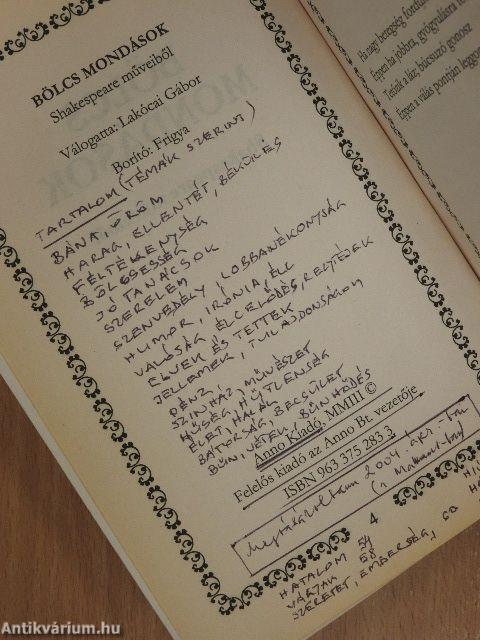 BÖLCS MONDÁSOK
Shakespeare műveiből
Válogatta: Lakócai Gábor
Borító: Frigya
TARTALOM (TÉMÁK SZERINT)
BÁNAT, ÖRÖM
HARAG, ELLENTÉT, BÉKÜLÉS
FÉLTÉKENYSÉG
BÖLCSESSÉG
JÓ TANÁCSOK
SZERELEM
SZENVEDÉLY, LOBBANÉKONYSÁG
HUMOR, IRÓNIA, ÉLC
VALÓSÁG, ÉLCELŐDÉS, REJTÉLYEK
ELVEK ÉS TETTEK
JELLEMEK, TULAJDONSÁGOK
PÉNZ,
SZINHÁZ, MŰVÉSZET
HŰSÉG, HŰTLENSÉG
ÉLET, HALÁL
BÁTORSÁG, BECSÜLET
BŰN, VÉTEK, BŰNHŐDÉS
Anno Kiadó, MMIII ©
Felelős kiadó az Anno Bt. vezetője
ISBN 963 375 283 3
Megvásároltam 2004 ápr.-ban
4
HATALOM 54
VÁGYAK 68
SZERETET, EMBERSÉG,
Ha nagy betegség fordul
Éppen ha jobbra, gyógyulásra
Tetézik a láz, búcsúzó gonosz
Éppen a válás pontján leggonosz
Antikvárium.hu